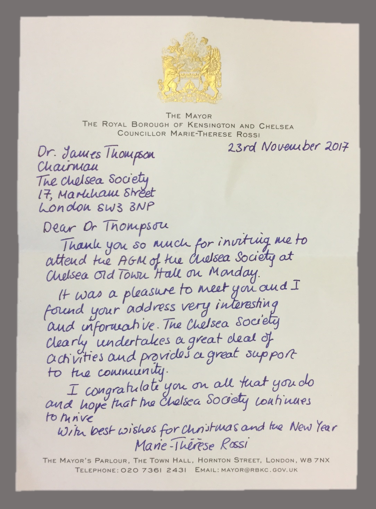 The Mayor
The Royal Borough of Kensington and Chelsea
Councillor Marie-Therese Rossi
23rd November 2017
Dr. James Thompson
Chairman
The Chelsea Society
17, Markham Street
London SW3 3NP
Dear Dr Thompson
Thank you so much for inviting me to
attend the AGM of the Chelsea Society at
Chelsea Old Town Hall on Monday.
It was a pleasure to meet you and I
found your address very interesting
and informative. The Chelsea Society
clearly undertakes a great deal of
activities and provides a great support
to the community.
I congratulate you on all that you do
and hope that the Chelsea Society continues
to thrive
With best wishes for Christmas and the New Year
Marie-Thérèse Rossi
The Mayor's Parlour, The Town Hall, Hornton Street, London, W8 7NX
Telephone: 020 7361 2431 Email: mayor@rbkc.gov.uk